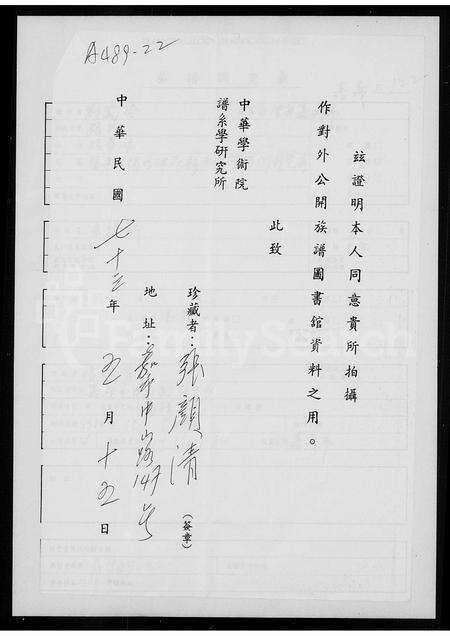 A489-22
玆證明本人同意貴所拍攝
作對外公開族譜圖書舘資料之用。
此致
中華學術院
譜系學研究所
珍藏者：張顏清（簽章）
地址：嘉市中山路147号
中華民國七十三年五月十五日
FamilySearch